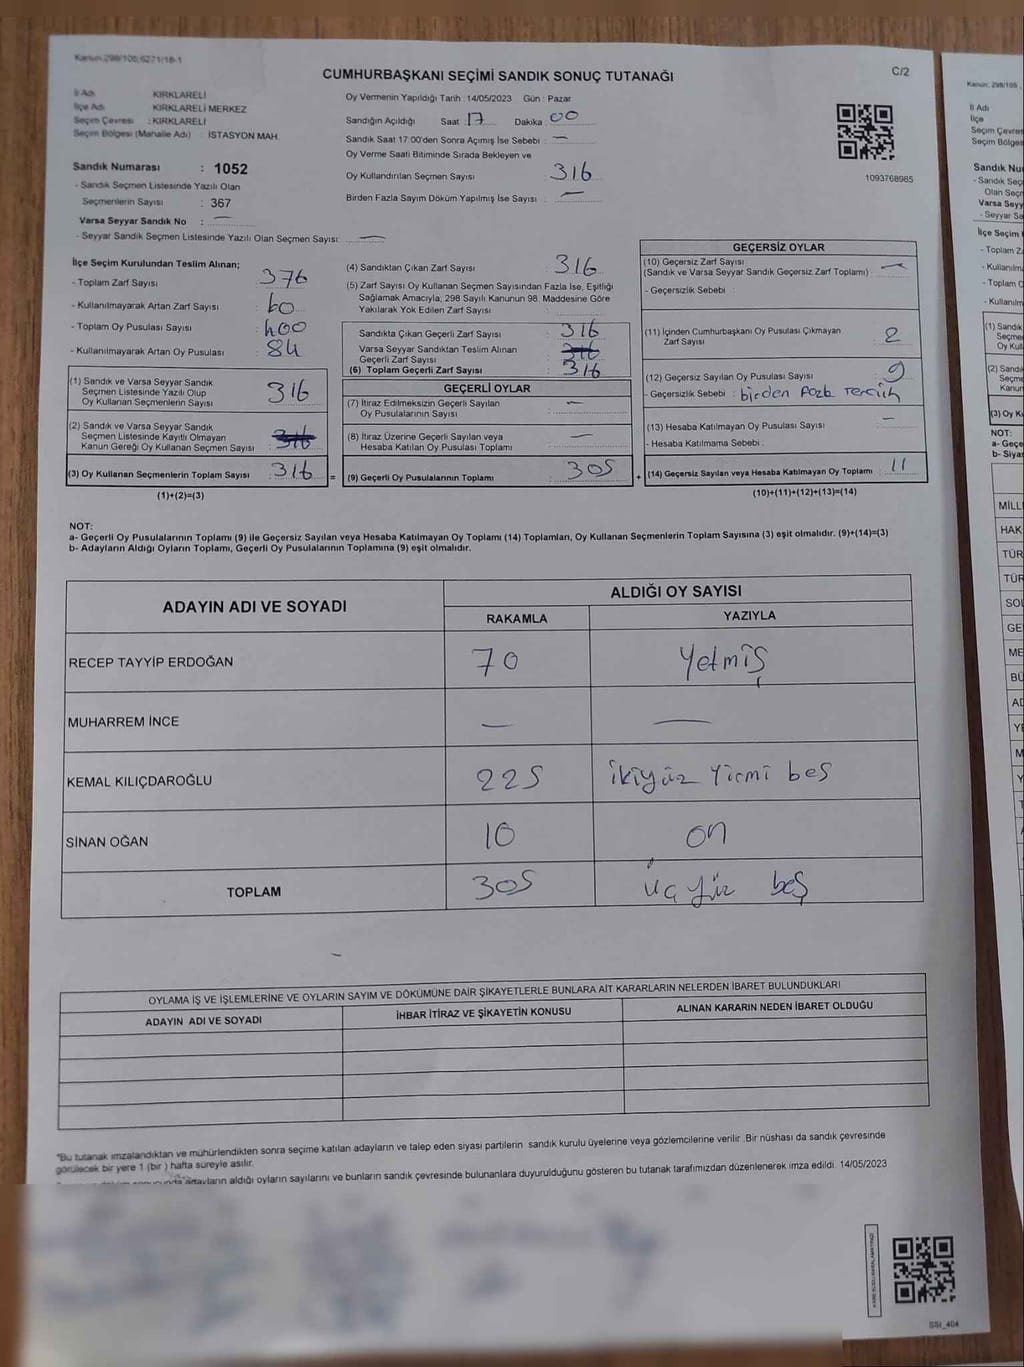 Kanun; 298/105; 6271/16-1
CUMHURBAŞKANI SEÇİMİ SANDIK SONUÇ TUTANAĞI
C/2
İl Adı KIRKLARELİ
İlçe Adı KIRKLARELİ MERKEZ
Seçim Çevresi : KIRKLARELİ
Seçim Bölgesi (Mahalle Adı) : İSTASYON MAH.
Sandık Numarası : 1052
- Sandık Seçmen Listesinde Yazılı Olan
Seçmenlerin Sayısı : 367
Varsa Seyyar Sandık No : —
- Seyyar Sandık Seçmen Listesinde Yazılı Olan Seçmen Sayısı: —
Oy Vermenin Yapıldığı Tarih : 14/05/2023 Gün : Pazar
Sandığın Açıldığı Saat 17 Dakika 00
Sandık Saat 17:00'den Sonra Açımış İse Sebebi : —
Oy Verme Saati Bitiminde Sırada Bekleyen ve
Oy Kullandırılan Seçmen Sayısı 316
Birden Fazla Sayım Döküm Yapılmış İse Sayısı : —
1093768985
İlçe Seçim Kurulundan Teslim Alınan;
- Toplam Zarf Sayısı : 376
- Kullanılmayarak Artan Zarf Sayısı : 60
- Toplam Oy Pusulası Sayısı : 400
- Kullanılmayarak Artan Oy Pusulası : 84
(1) Sandık ve Varsa Seyyar Sandık
Seçmen Listesinde Yazılı Olup
Oy Kullanan Seçmenlerin Sayısı 316
(2) Sandık ve Varsa Seyyar Sandık
Seçmen Listesinde Kayıtlı Olmayan
Kanun Gereği Oy Kullanan Seçmen Sayısı 316
(3) Oy Kullanan Seçmenlerin Toplam Sayısı : 316 =
(1)+(2)=(3)
(4) Sandıktan Çıkan Zarf Sayısı : 316
(5) Zarf Sayısı Oy Kullanan Seçmen Sayısından Fazla İse, Eşitliği
Sağlamak Amacıyla; 298 Sayılı Kanunun 98. Maddesine Göre
Yakılarak Yok Edilen Zarf Sayısı :
Sandıkta Çıkan Geçerli Zarf Sayısı : 316
Varsa Seyyar Sandıktan Teslim Alınan
Geçerli Zarf Sayısı : 316
(6) Toplam Geçerli Zarf Sayısı : 316
GEÇERLİ OYLAR
(7) İtiraz Edilmeksizin Geçerli Sayılan
Oy Pusulalarının Sayısı : —
(8) İtiraz Üzerine Geçerli Sayılan veya
Hesaba Katılan Oy Pusulası Toplamı : —
(9) Geçerli Oy Pusulalarının Toplamı : 305 +
GEÇERSİZ OYLAR
(10) Geçersiz Zarf Sayısı
(Sandık ve Varsa Seyyar Sandık Geçersiz Zarf Toplamı) : —
- Geçersizlik Sebebi :
(11) İçinden Cumhurbaşkanı Oy Pusulası Çıkmayan
Zarf Sayısı : 2
(12) Geçersiz Sayılan Oy Pusulası Sayısı : 9
- Geçersizlik Sebebi : birden fazla tercih
(13) Hesaba Katılmayan Oy Pusulası Sayısı : —
- Hesaba Katılmama Sebebi :
(14) Geçersiz Sayılan veya Hesaba Katılmayan Oy Toplamı : 11
(10)+(11)+(12)+(13)=(14)
NOT:
a- Geçerli Oy Pusulalarının Toplamı (9) ile Geçersiz Sayılan veya Hesaba Katılmayan Oy Toplamı (14) Toplamları, Oy Kullanan Seçmenlerin Toplam Sayısına (3) eşit olmalıdır. (9)+(14)=(3)
b- Adayların Aldığı Oyların Toplamı, Geçerli Oy Pusulalarının Toplamına (9) eşit olmalıdır.
ADAYIN ADI VE SOYADI ALDIĞI OY SAYISI
RAKAMLA YAZIYLA
RECEP TAYYİP ERDOĞAN 70 Yetmiş
MUHARREM İNCE — —
KEMAL KILIÇDAROĞLU 225 ikiyüz Yirmi beş
SİNAN OĞAN 10 on
TOPLAM 305 üç yüz beş
OYLAMA İŞ VE İŞLEMLERİNE VE OYLARIN SAYIM VE DÖKÜMÜNE DAİR ŞİKAYETLERLE BUNLARA AİT KARARLARIN NELERDEN İBARET BULUNDUKLARI
ADAYIN ADI VE SOYADI İHBAR İTİRAZ VE ŞİKAYETİN KONUSU ALINAN KARARIN NEDEN İBARET OLDUĞU
*Bu tutanak imzalandıktan ve mühürlendikten sonra seçime katılan adayların ve talep eden siyasi partilerin sandık kurulu üyelerine veya gözlemcilerine verilir .Bir nüshası da sandık çevresinde
görülecek bir yere 1 (bir ) hafta süreyle asılır.
adayların aldığı oyların sayılarını ve bunların sandık çevresinde bulunanlara duyurulduğunu gösteren bu tutanak tarafımızdan düzenlenerek imza edildi. 14/05/2023
SSt_404
Kanun; 298/105
İl Adı
İlçe
Seçim Çevres
Seçim Bölges
Sandık Nu
- Sandık Seç
Olan Seç
Varsa Seyy
- Seyyar Sa
İlçe Seçim
- Toplam Z
- Kullanılm
- Toplam C
- Kullanılm
(1) Sandı
Seçme
Oy Kul
(2) Sandı
Seçme
Kanu
(3) Oy K
NOT:
a- Geçe
b- Siya
MİLLİ
HAK
TÜR
TÜR
SOL
GE
ME
BÜ
AD
YE
M
Y
T